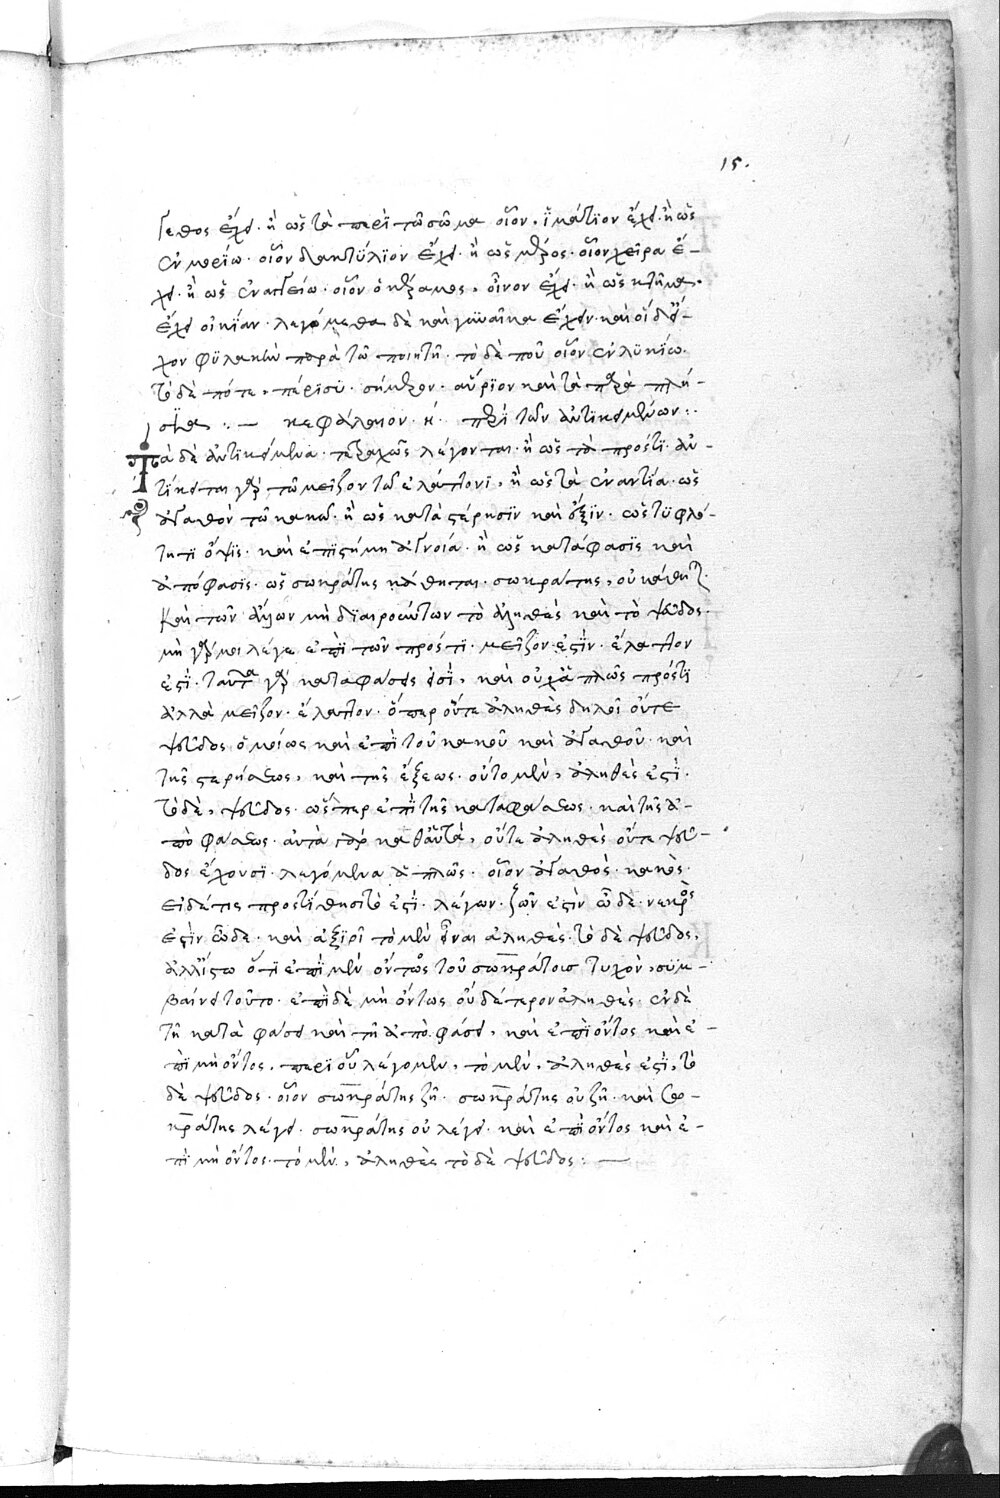 15.
γεθος ἔχει· ἢ ὡς τὰ περὶ τῶ σῶμα οἷον, ἱμάτϊον ἔχει· ἢ ὡς
ἐν μορίω· οἷον δακτύλϊον ἔχει· ἢ ὡς μέρος· οἷον χεῖρα ἔ-
χει· ἢ ὡς ἐν ἀγγείω· οἷον ὁ κέραμος, οἶνον ἔχει· ἢ ὡς κτῆμα·
ἔχει οἰκίαν· λεγόμεθα δὲ καὶ γυναῖκα ἔχειν· καὶ
χον φϋλακὼ παρὰ τῶ ποιητῆ· τὸ δὲ ποῦ οἷον ἐν λϋκίω·
τὸ δὲ πότε, πέρϊσϋ· σήμερον· αὔριον καὶ τὰ παρα πλή-
σια :— κεφάλαιον· η· περὶ τῶν ἀντικειμένων :·
Τὰ δὲ ἀντικείμενα· τετραχῶς λέγονται· ἢ ὡς τὰ πρόστι· ἀν-
τίκειται γὰρ τῶ μεῖζον τῶ ἐλάττονι, ἢ ὡς τὰ ἐναντία· ὡς
ἀγαθὸν τῶ κακῶ· ἢ ὡς κατὰ στέρησϊν καὶ ἕξϊν· ὡς τϋφλό-
τητι ὄψϊς· καὶ ἐπϊστήμη ἀγνοία· ἢ ὡς κατάφασϊς καὶ
ἀπόφασϊς· ὡς σωκράτης κάθηται· σωκράτης, οὐ κάθηται·
Καὶ τῶν ἄλλων μὴ δϊαιρούντων τὸ ἀληθὲς καὶ τὸ ψεῦδος·
μὴ γάρ μοι λέγε ἐπὶ τῶν πρόστι· μεῖζον ἐστὶν· ἔλαττον
ἐστὶ· ταῦτα γὰρ καταφάσεις εἰσὶ, καὶ οὐχ ἁπλῶς πρόστϊ
ἀλλὰ μεῖζον· ἔλαττον· ὅπερ οὔτε ἀληθὲς δηλοῖ οὔτε
ψεῦδος ὁμοίως καὶ ἐπὶ τοῦ κακοῦ καὶ ἀγαθοῦ· καὶ
τῆς στερήσεως, καὶ τῆς ἕξεως· οὐ τὸ μὲν, ἀληθές ἐστϊ·
τὸ δὲ, ψεῦδος· ὥσπερ ἐπὶ τῆς καταφάσεως· καὶ τῆς ἀ-
ποφάσεως· αὐτὰ γὰρ καθαὑτὰ, οὔτε ἀληθὲς οὔτε ψεῦ-
δος ἔχουσϊ· λεγόμενα ἁπλῶς· οἷον ἀγαθὸς· κακὸς·
εἰ δέ τις προστϊθησι τὸ ἐστὶ· λέγων· ζῶν ἐστὶν ὧδε· νεκρὸς
ἐστὶν ὧδε· καὶ ἀξϊοῖ τὸ μὲν εἶναι ἀληθὲς· τὸ δὲ ψεῦδος,
ἀλλ' ἴστω ὅτϊ ἐπὶ μὲν ὄντως τοῦ σωκράτοισ τυχὸν, σϋμ-
βαίνει τοῦτο· ἐπὶ δὲ μὴ ὄντως οὐδέτερον ἀληθὲς· ἐν δὲ
τῆ καταφάσει καὶ τῆ ἀποφάσει, καὶ ἐπὶ ὄντος καὶ ἐ-
πὶ μὴ ὄντος, περὶ οὗ λέγομεν, τὸ μὲν, ἀληθές ἐστὶ, τὸ
δὲ ψεῦδος· οἷον σωκράτης ζῆ· σωκράτης οὐ ζῆ· καὶ σω-
κράτης λέγει· σωκράτης οὐ λέγει· καὶ ἐπὶ ὄντος καὶ ἐ-
πὶ μὴ ὄντος· τὸ μὲν, ἀληθὲς τὸ δὲ ψεῦδος :—